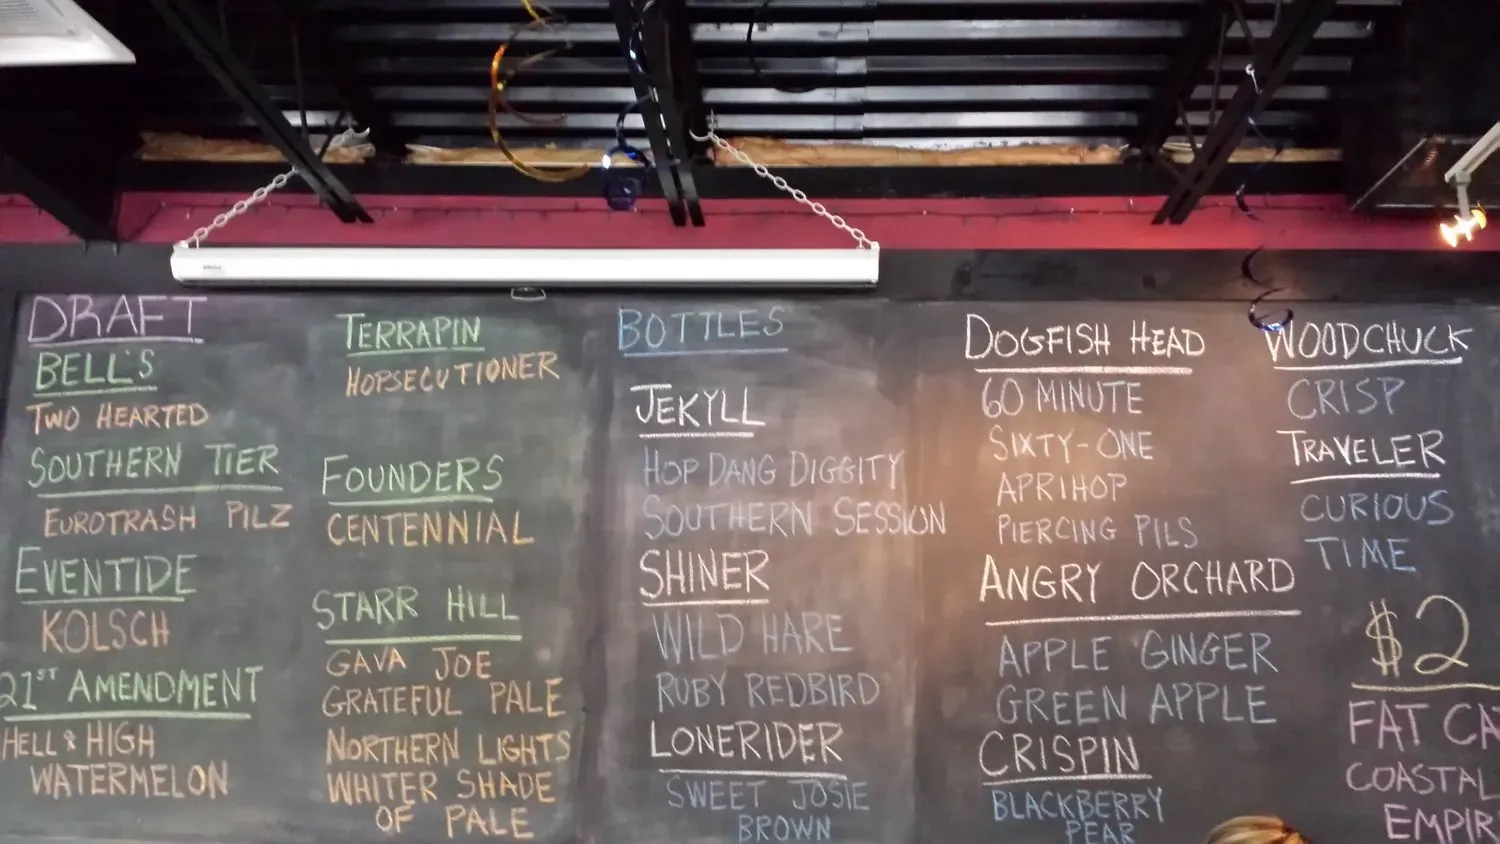 DRAFT
BELL'S
TWO HEARTED
SOUTHERN TIER
EUROTRASH PILZ
EVENTIDE
KOLSCH
21ST AMENDMENT
HELL & HIGH
WATERMELON
TERRAPIN
HOPSECUTIONER
FOUNDERS
CENTENNIAL
STARR HILL
GAVA JOE
GRATEFUL PALE
NORTHERN LIGHTS
WHITER SHADE
OF PALE
BOTTLES
JEKYLL
HOP DANG DIGGITY
SOUTHERN SESSION
SHINER
WILD HARE
RUBY REDBIRD
LONERIDER
SWEET JOSIE
BROWN
DOGFISH HEAD
60 MINUTE
SIXTY-ONE
APRIHOP
PIERCING PILS
ANGRY ORCHARD
APPLE GINGER
GREEN APPLE
CRISPIN
BLACKBERRY
PEAR
WOODCHUCK
CRISP
TRAVELER
CURIOUS
TIME
$2
FAT CA
COASTAL
EMPIR